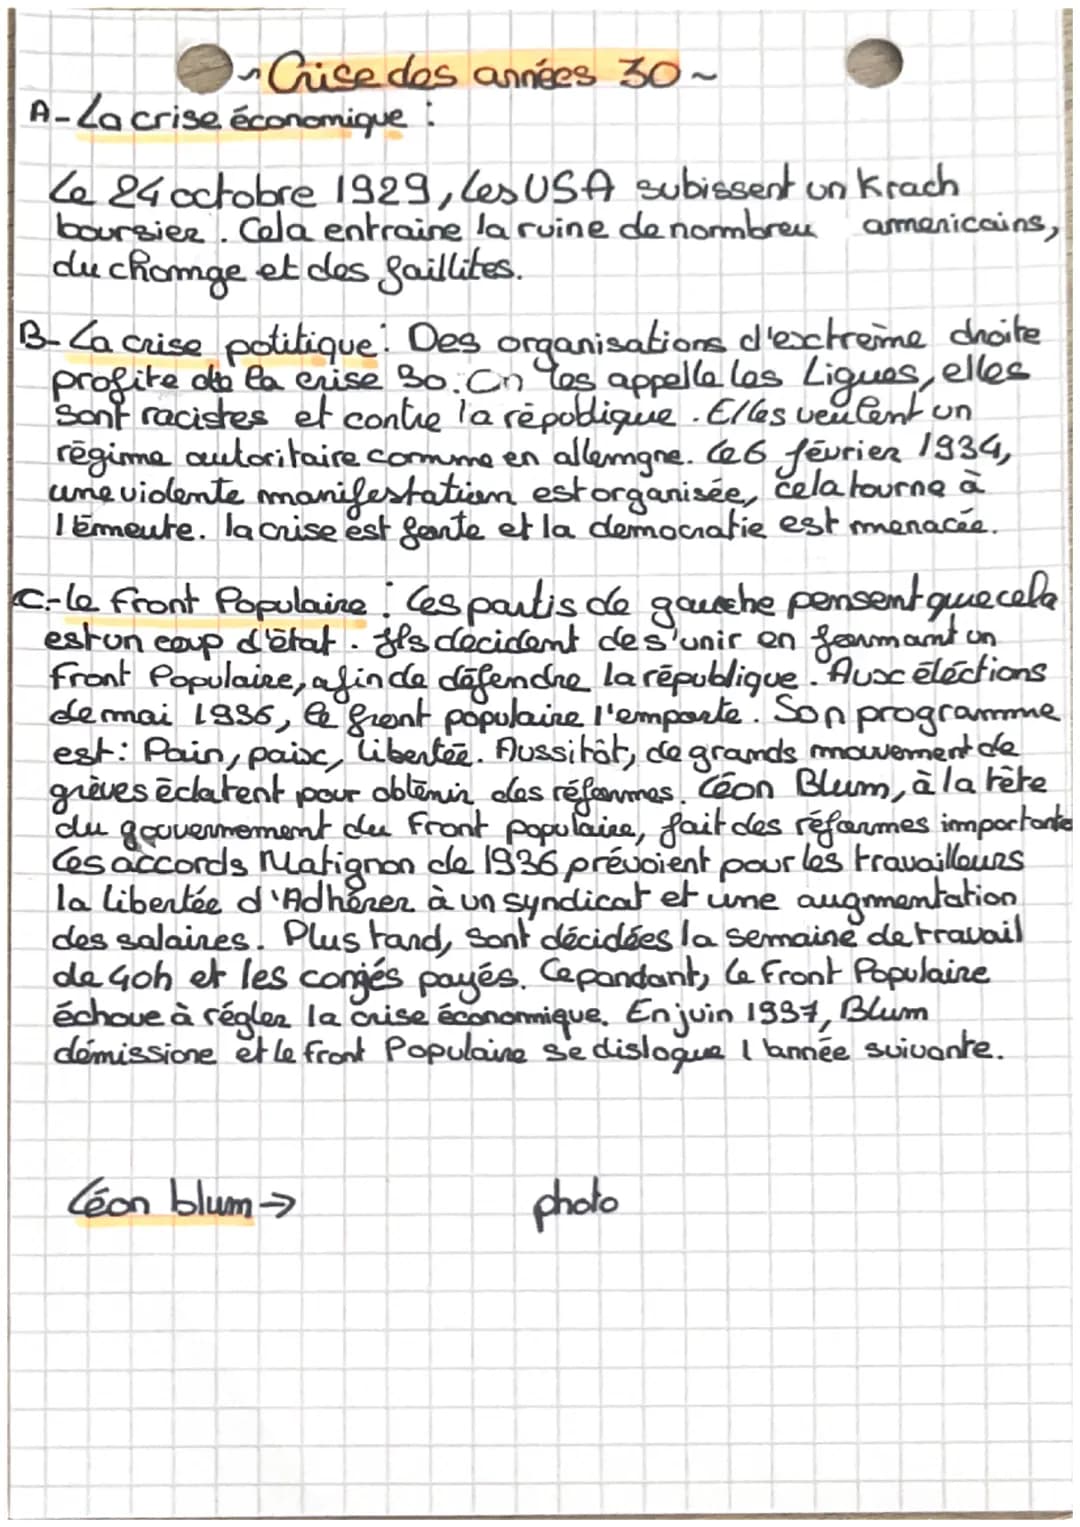 ~ Crise des années 30 ~
A- La crise économique :
Le 24 octobre 1929, les USA subissent un Krach
boursier. Cela entraine la ruine de nombreu américains,
du chomge et des faillites.
B- La crise politique : Des organisations d'extrème droite
profite de la crise 30. On les appelle les Ligues, elles
sont racistes et contre la républiqque. Elles veulent un
régime autoritaire comme en allemgne. Le 6 février 1934,
une violente manifestation est organisée, cela tourne à
l'émeute. la crise est forte et la democratie est menacée.
C- le Front Populaire : Les partis de gauche pensent que cela
est un coup d'état. Ils decident de s'unir en formant un
Front Populaire, afin de défendre la république. Aux éléctions
de mai 1936, le front populaire l'emporte. Son programme
est : Pain, paix, libertée. Aussitôt, de grands mouvement de
grèves éclatent pour obtenir des réformes. Léon Blum, à la tête
du gouvernement du Front populaire, fait des réformes importante
Les accords Matignon de 1936 prévoient pour les travailleurs
la libertée d'Adhérer à un syndicat et une augmentation
des salaires. Plus tard, sont décidées la semaine de travail
de 40h et les congés payés. Cependant, le Front Populaire
échoue à régler la crise économique. En juin 1937, Blum
démissione et le front Populaire se disloque l'année suivante.
Léon blum → photo